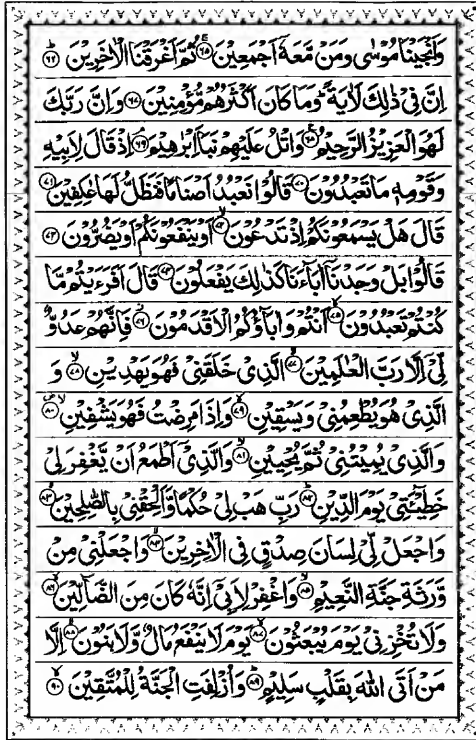 وَاَنْجَيْنَا مُوْسٰى وَمَنْ مَّعَهٗۤ اَجْمَعِيْنَ ﴿۶۵﴾ ثُمَّ اَغْرَقْنَا الْاٰخَرِيْنَ ﴿۶۶﴾
اِنَّ فِىْ ذٰلِكَ لَاٰيَةً ؕ وَمَا كَانَ اَكْثَرُهُمْ مُّؤْمِنِيْنَ ﴿۶۷﴾ وَاِنَّ رَبَّكَ
لَهُوَ الْعَزِيْزُ الرَّحِيْمُ ﴿۶۸﴾ وَاتْلُ عَلَيْهِمْ نَبَاَ اِبْرٰهِيْمَ ﴿۶۹﴾ اِذْ قَالَ لِاَبِيْهِ
وَقَوْمِهٖ مَا تَعْبُدُوْنَ ﴿۷۰﴾ قَالُوْا نَعْبُدُ اَصْنَامًا فَنَظَلُّ لَهَا عٰكِفِيْنَ ﴿۷۱﴾
قَالَ هَلْ يَسْمَعُوْنَكُمْ اِذْ تَدْعُوْنَ ﴿۷۲﴾ اَوْ يَنْفَعُوْنَكُمْ اَوْ يَضُرُّوْنَ ﴿۷۳﴾
قَالُوْا بَلْ وَجَدْنَاۤ اٰبَآءَنَا كَذٰلِكَ يَفْعَلُوْنَ ﴿۷۴﴾ قَالَ اَفَرَءَيْتُمْ مَّا
كُنْتُمْ تَعْبُدُوْنَ ﴿۷۵﴾ اَنْتُمْ وَاٰبَآؤُكُمُ الْاَقْدَمُوْنَ ﴿۷۶﴾ فَاِنَّهُمْ عَدُوٌّ
لِّىْۤ اِلَّا رَبَّ الْعٰلَمِيْنَ ﴿۷۷﴾ الَّذِىْ خَلَقَنِىْ فَهُوَ يَهْدِيْنِ ﴿۷۸﴾ وَ
الَّذِىْ هُوَ يُطْعِمُنِىْ وَيَسْقِيْنِ ﴿۷۹﴾ وَاِذَا مَرِضْتُ فَهُوَ يَشْفِيْنِ ﴿۸۰﴾
وَالَّذِىْ يُمِيْتُنِىْ ثُمَّ يُحْيِيْنِ ﴿۸۱﴾ وَالَّذِىْۤ اَطْمَعُ اَنْ يَّغْفِرَ لِىْ
خَطِيْٓئَتِىْ يَوْمَ الدِّيْنِ ﴿۸۲﴾ رَبِّ هَبْ لِىْ حُكْمًا وَّاَلْحِقْنِىْ بِالصّٰلِحِيْنَ ﴿۸۳﴾
وَاجْعَلْ لِّىْ لِسَانَ صِدْقٍ فِى الْاٰخِرِيْنَ ﴿۸۴﴾ وَاجْعَلْنِىْ مِنْ
وَّرَثَةِ جَنَّةِ النَّعِيْمِ ﴿۸۵﴾ وَاغْفِرْ لِاَبِىْۤ اِنَّهٗ كَانَ مِنَ الضَّآلِّيْنَ ﴿۸۶﴾
وَلَا تُخْزِنِىْ يَوْمَ يُبْعَثُوْنَ ﴿۸۷﴾ يَوْمَ لَا يَنْفَعُ مَالٌ وَّلَا بَنُوْنَ ﴿۸۸﴾ اِلَّا
مَنْ اَتَى اللّٰهَ بِقَلْبٍ سَلِيْمٍ ﴿۸۹﴾ وَاُزْلِفَتِ الْجَنَّةُ لِلْمُتَّقِيْنَ ﴿۹۰﴾